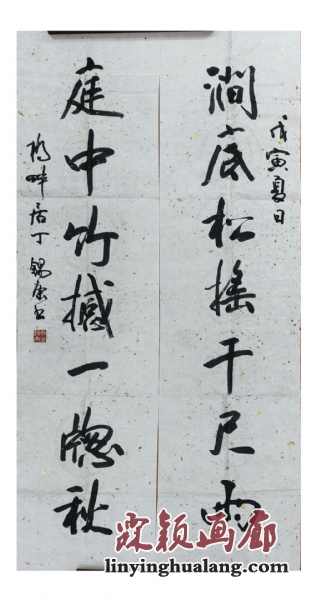 戊寅夏日
澗底松搖千尺雨
庭中竹撼一牕秋
畔居丁錫康书
霖颖画廊
linyinghualang.com